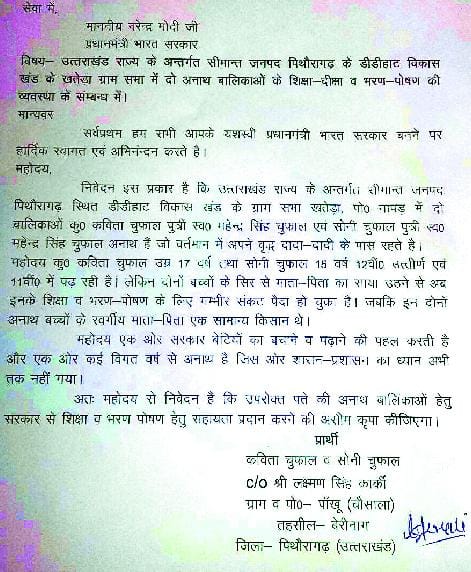 सेवा में,
माननीय नरेन्द्र मोदी जी
प्रधानमंत्री भारत सरकार
विषय– उत्तराखंड राज्य के अन्तर्गत सीमान्त जनपद पिथौरागढ़ के डीडीहाट विकास
खंड के खतेडा ग्राम सभा में दो अनाथ बालिकाओं के शिक्षा–दीक्षा व भरण–पोषण की
व्यवस्था के सम्बन्ध में।
मान्यवर
सर्वप्रथम हम सभी आपके यशस्वी प्रधानमंत्री भारत सरकार बनने पर
हार्दिक स्वागत एवं अभिनन्दन करते है।
महोदय,
निवेदन इस प्रकार है कि उत्तराखंड राज्य के अन्तर्गत सीमान्त जनपद
पिथौरागढ़ स्थित डीडीहाट विकास खंड के ग्राम सभा खतेड़ा, पो० नापड़ में दो
बालिकाओं कु० कविता चुफाल पुत्री स्व० महेन्द्र सिंह चुफाल एवं सोनी चुफाल पुत्री स्व०
महेन्द्र सिंह चुफाल अनाथ है जो वर्तमान में अपने वृद्ध दादा–दादी के पास रहते है।
महोदय कु० कविता चुफाल उम्र 17 वर्ष तथा सोनी चुफाल 16 वर्ष 12वीं० उत्तीर्ण एवं
11वीं० में पढ़ रही है। लेकिन दोनों बच्चों के सिर से माता–पिता का साया उठने से अब
इनके शिक्षा व भरण–पोषण के लिए गम्भीर संकट पैदा हो चुका है। जबकि इन दोनो
अनाथ बच्चों के स्वर्गीय माता–पिता एक सामान्य किसान थे।
महोदय एक ओर सरकार बेटियों का बचाने व पढ़ाने की पहल करती है
और एक ओर कई विगत वर्ष से अनाथ है जिस ओर शासन–प्रशासन का ध्यान अभी
तक नहीं गया।
अतः महोदय से निवेदन है कि उपरोक्त पते की अनाथ बालिकाओं हेतु
सरकार से शिक्षा व भरण पोषण हेतु सहायता प्रदान करने की असीम कृपा कीजिएगा।
प्रार्थी
कविता चुफाल व सोनी चुफाल
c/o श्री लक्ष्मण सिंह कार्की
ग्राम व पो०– पॉखू (चौसाला)
तहसील– बेरीनाग
जिला– पिथौरागढ़ (उत्तराखंड)